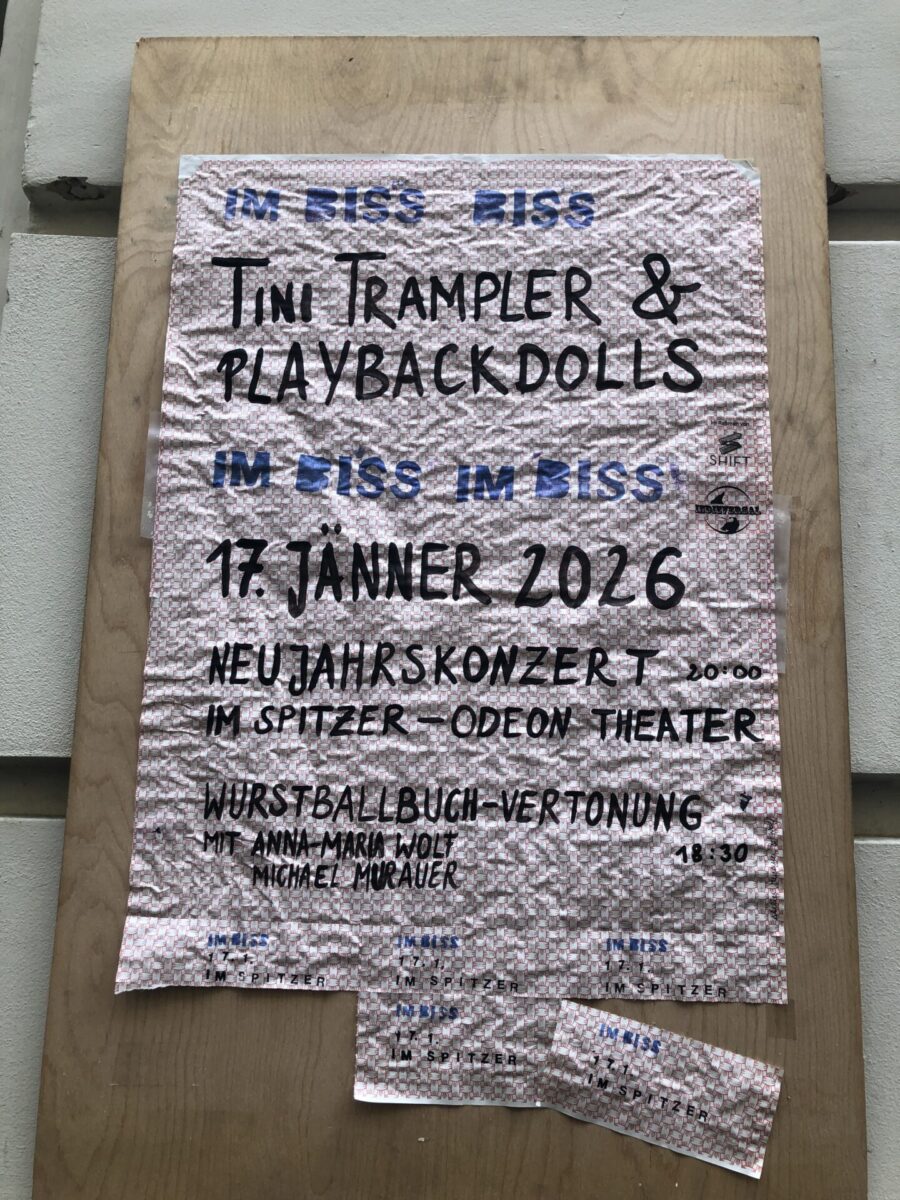 IM BISS BISS
TINI TRAMPLER &
PLAYBACKDOLLS
SHIFT
IM BISS IM BISS
INDIEVERSAL
17. JÄNNER 2026
NEUJAHRSKONZERT 20:00
IM SPITZER – ODEON THEATER
WURSTBALLBUCH-VERTONUNG
MIT ANNA-MARIA WOLF 18:30
MICHAEL MURAUER
IM BISS IM BISS IM BISS
17.1. 17.1. 17.1.
IM SPITZER IM SPITZER IM SPITZER
IM BISS
17.1.
IM SPITZER
IM BISS
17.1.
IM SPITZER